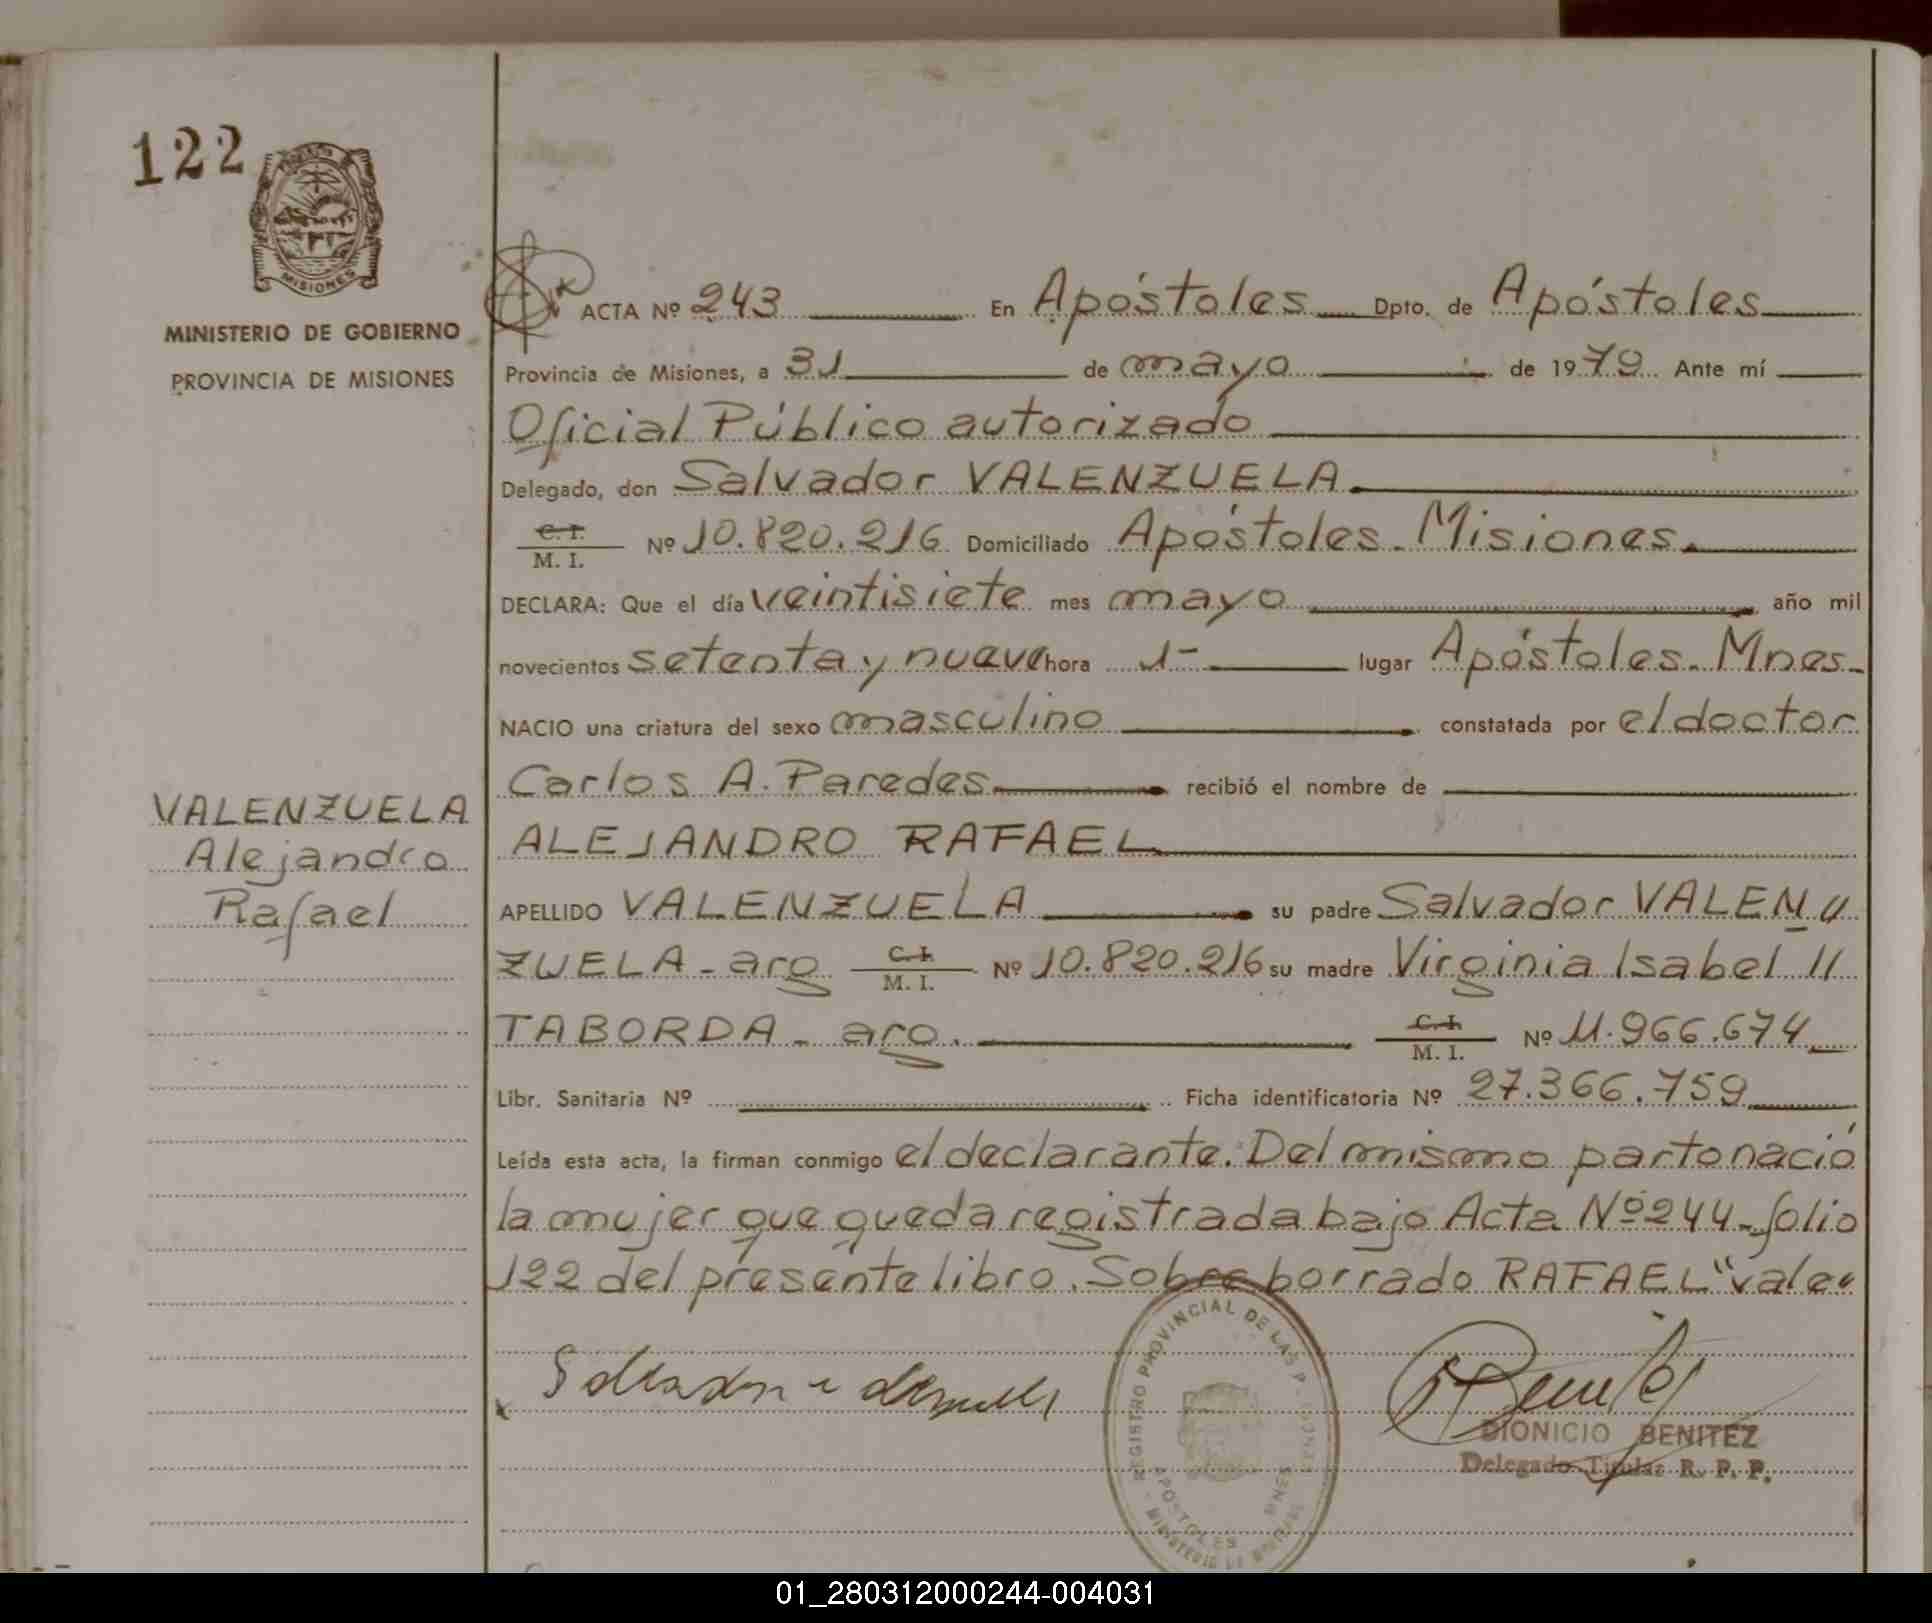 122
MISIONES
MINISTERIO DE GOBIERNO
PROVINCIA DE MISIONES
VALENZUELA
Alejandro
Rafael
ACTA Nº 243 En Apóstoles Dpto. de Apóstoles
Provincia de Misiones, a 31 de mayo de 1979 Ante mí
Oficial Público autorizado
Delegado, don Salvador VALENZUELA
C. I.
M. I. Nº 10.820.216 Domiciliado Apóstoles. Misiones.
DECLARA: Que el día veintisiete mes mayo año mil
novecientos setenta y nueve hora 1- lugar Apóstoles. Mnes.
NACIO una criatura del sexo masculino constatada por el doctor
Carlos A. Paredes recibió el nombre de
ALEJANDRO RAFAEL
APELLIDO VALENZUELA su padre Salvador VALEN //
ZUELA - arg C. I. M. I. Nº 10.820.216 su madre Virginia Isabel //
TABORDA - arg. C. I. M. I. Nº 11.966.674
Libr. Sanitaria Nº Ficha identificatoria Nº 27.366.759
Leída esta acta, la firman conmigo el declarante. Del mismo parto nació
la mujer que queda registrada bajo Acta Nº 244 - folio
122 del presente libro. Sobre borrado RAFAEL "vale"
REGISTRO PROVINCIAL DE LAS P
APOSTOLES MNES
DIONICIO BENITEZ
Delegado Titular R. P. P.
01_280312000244-004031